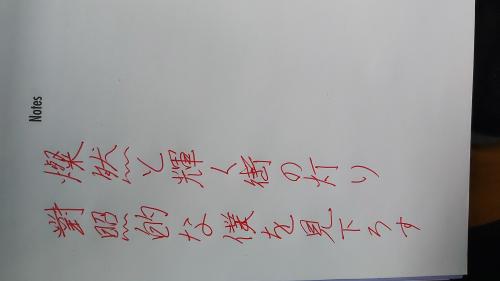 Notes
燦然と輝く街の灯り
對照的な僕を見下ろす